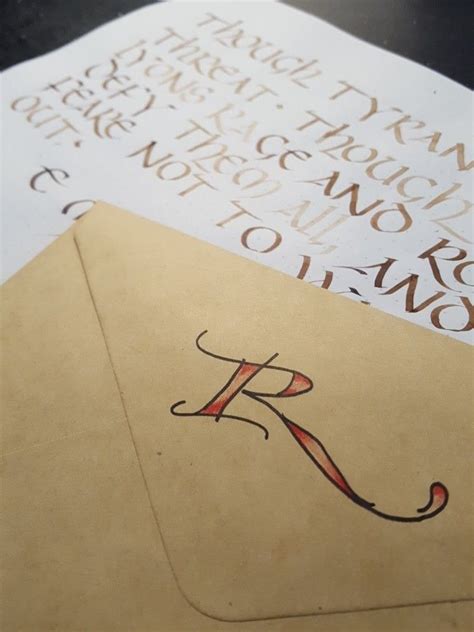 THOUGH TYRAN
THREAT. THOUGH
LYONS RAGE AND RO
DEFY THEM ALL, AND
FEARE NOT TO
OUT.
R